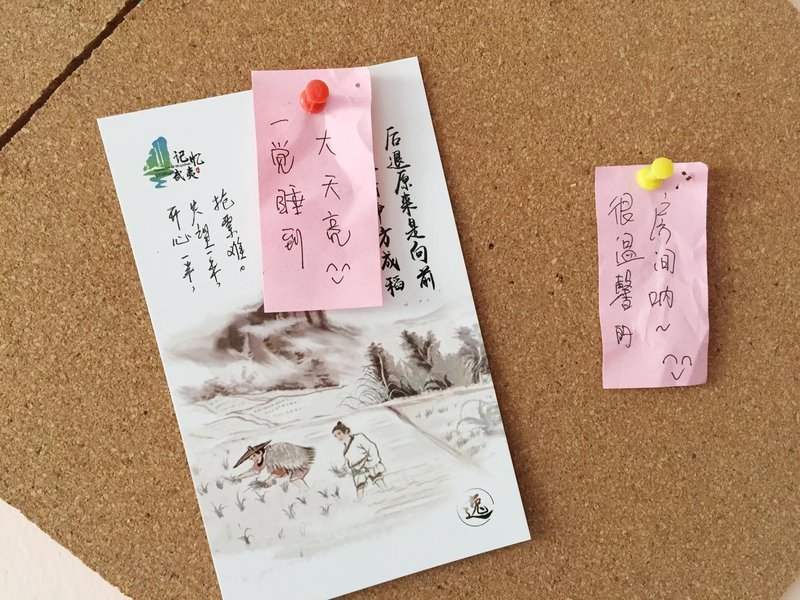 记忆
武夷
开心一半，
失望一半，
抢票难。
一觉睡到
大天亮
方成稻
后退原来是向前
逸
很温馨的
房间呐~